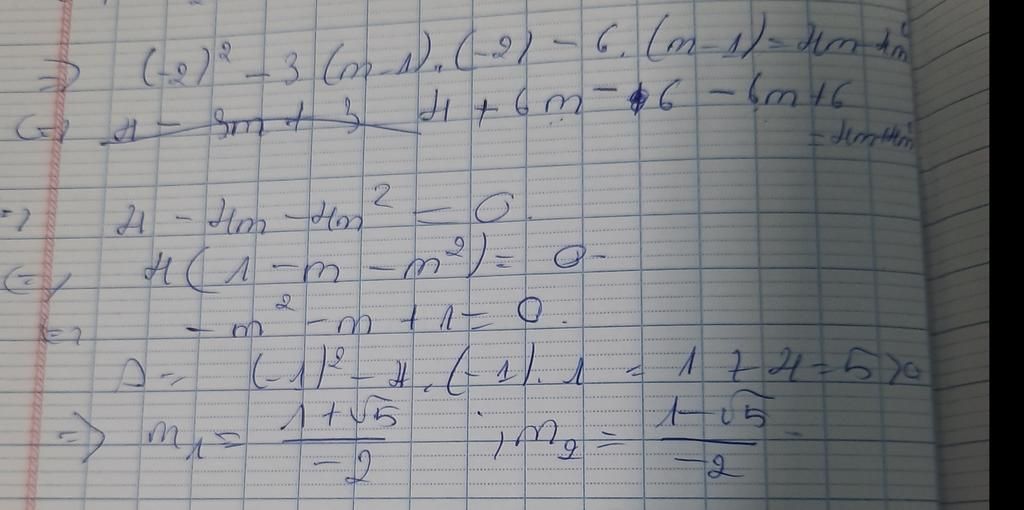 ⇒ (-2)² - 3(m-1).(-2) - 6.(m-1) = 4m - 4m²
⇔ 4 - 3m + 3 4 + 6m - 6 - 6m + 6
= 4m + 4m²
⇒ 4 - 4m - 4m² = 0.
⇔ 4(1 - m - m²) = 0
⇔ - m² - m + 1 = 0.
Δ = (-1)² - 4.(-1).1 = 1 + 4 = 5 > 0
⇒ m₁ = (1 + √5)/(-2) ; m₂ = (1 - √5)/(-2)